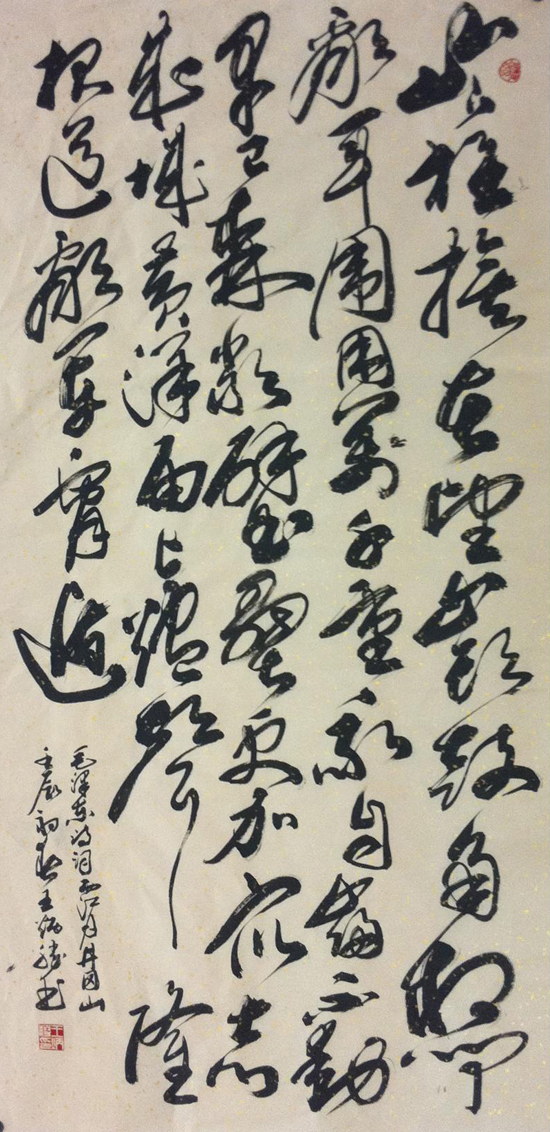 山下旌旗在望山头鼓角相闻
敵军围困萬千重我自巋然不動
早已森嚴壁壘更加众志
成城黄洋界上炮声隆
报道敵军宵遁
毛泽东诗词西江月井冈山
壬辰初春王炳书